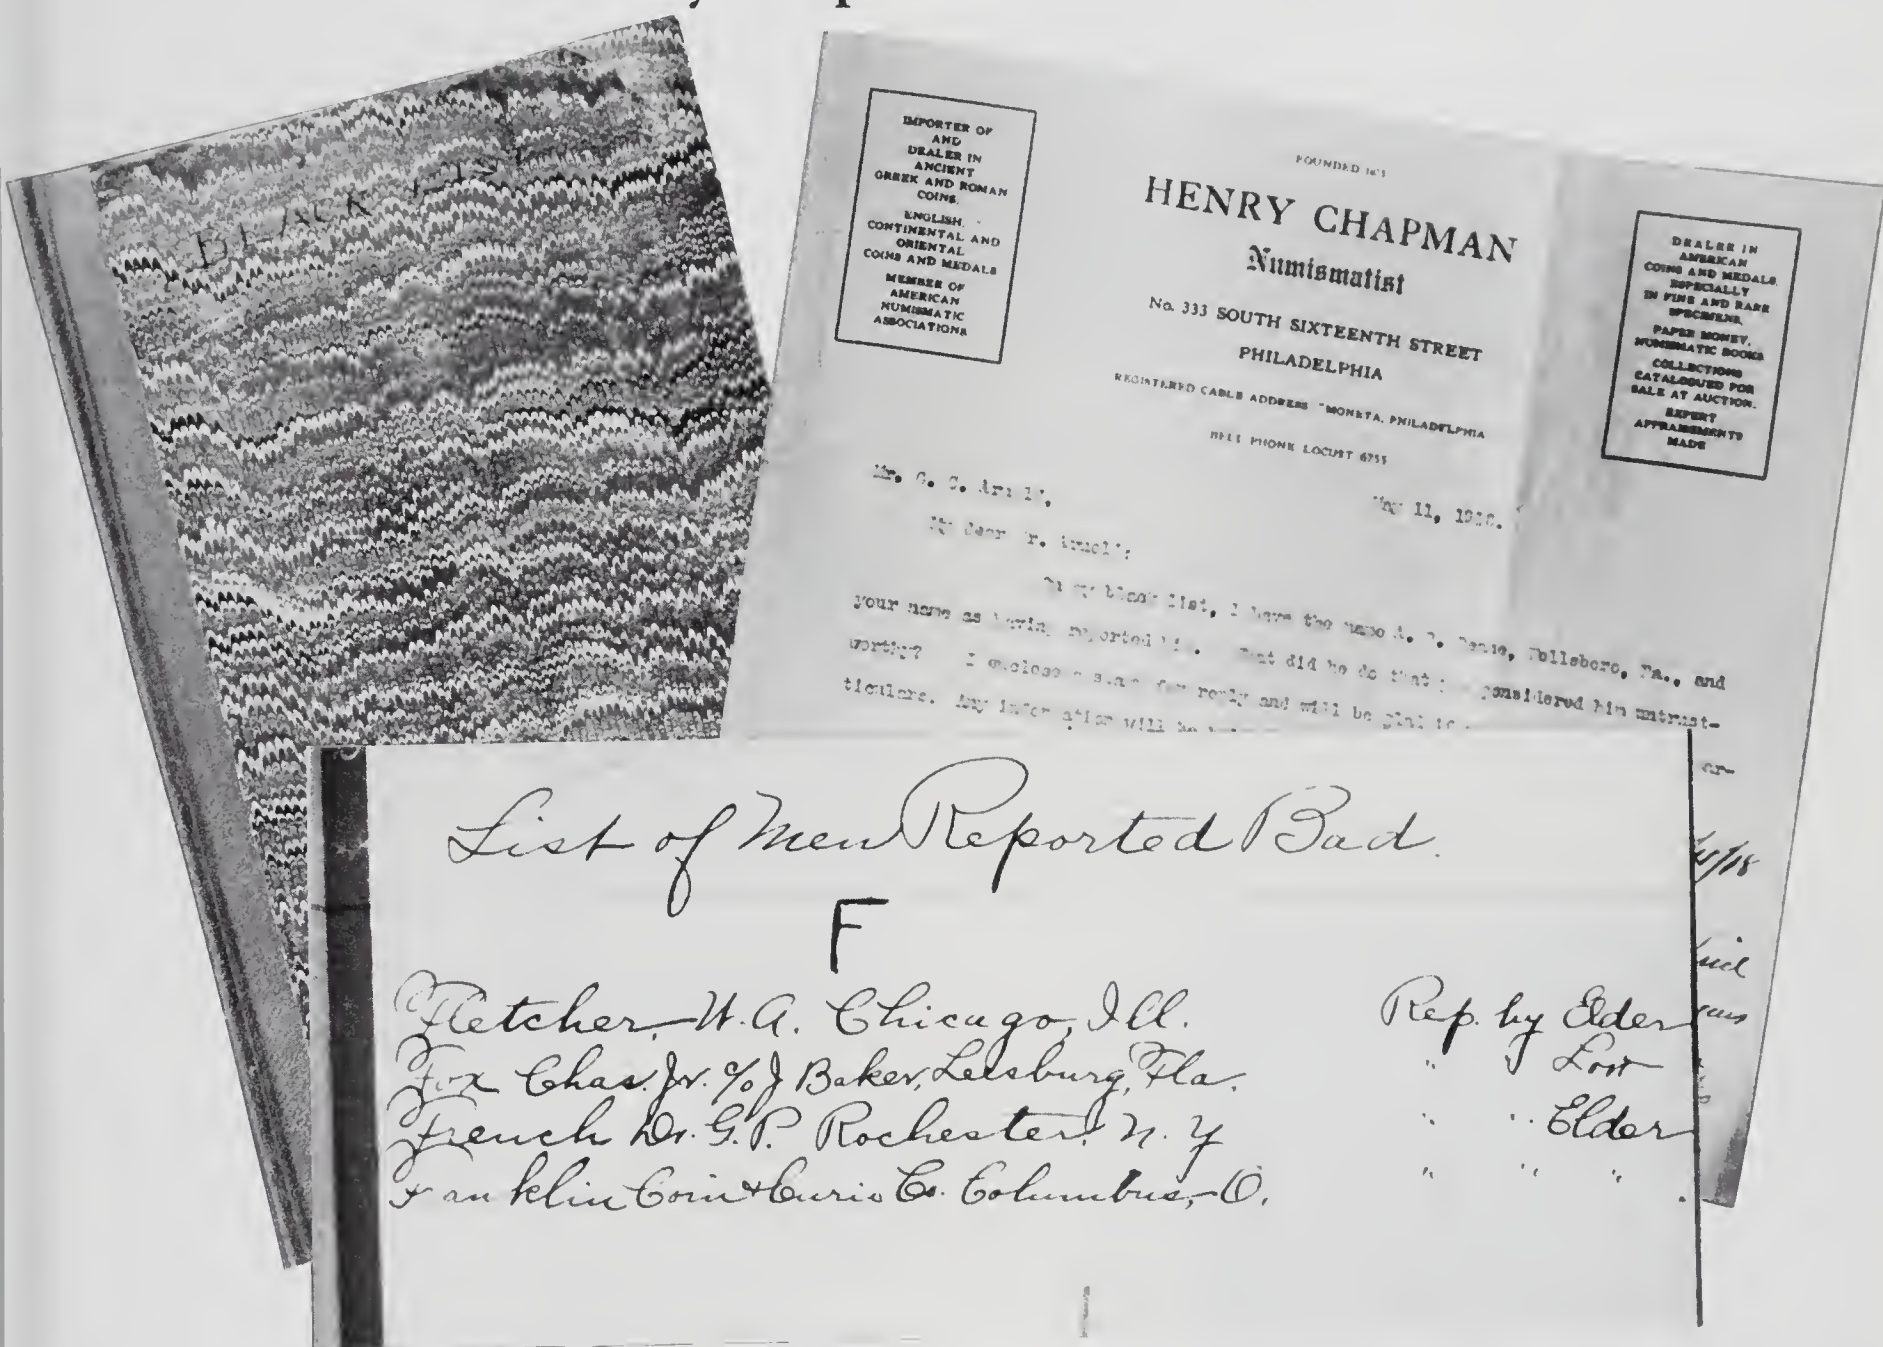 BLACK LIST
IMPORTER OF
AND
DEALER IN
ANCIENT
GREEK AND ROMAN
COINS.
ENGLISH,
CONTINENTAL AND
ORIENTAL
COINS AND MEDALS
MEMBER OF
AMERICAN
NUMISMATIC
ASSOCIATIONS
FOUNDED
HENRY CHAPMAN
Numismatist
No. 333 SOUTH SIXTEENTH STREET
PHILADELPHIA
REGISTERED CABLE ADDRESS "MONETA, PHILADELPHIA
BELL PHONE LOCUST 6755
DEALER IN
AMERICAN
COINS AND MEDALS,
ESPECIALLY
IN FINE AND RARE
SPECIMENS,
PAPER MONEY,
NUMISMATIC BOOKS
COLLECTIONS
CATALOGUED FOR
SALE AT AUCTION.
EXPERT
APPRAISEMENTS
MADE
Mr.
May 11,
My dear Mr.
black list, I have the name A. Pa., and
your name as having reported him. What did he do that considered him untrust-
worthy? I enclose a stamp for reply and will be glad
ticulars. Any information will be
ar-
List of Men Reported Bad.
F
Fletcher, W.A. Chicago, Ill. Rep. by Elder
Fox Chas. Jr. c/o J Baker, Leesburg, Fla. " "
French Dr. G.P. Rochester, N.Y " " Elder
Franklin Coin & Curio Co. Columbus, O. " " "